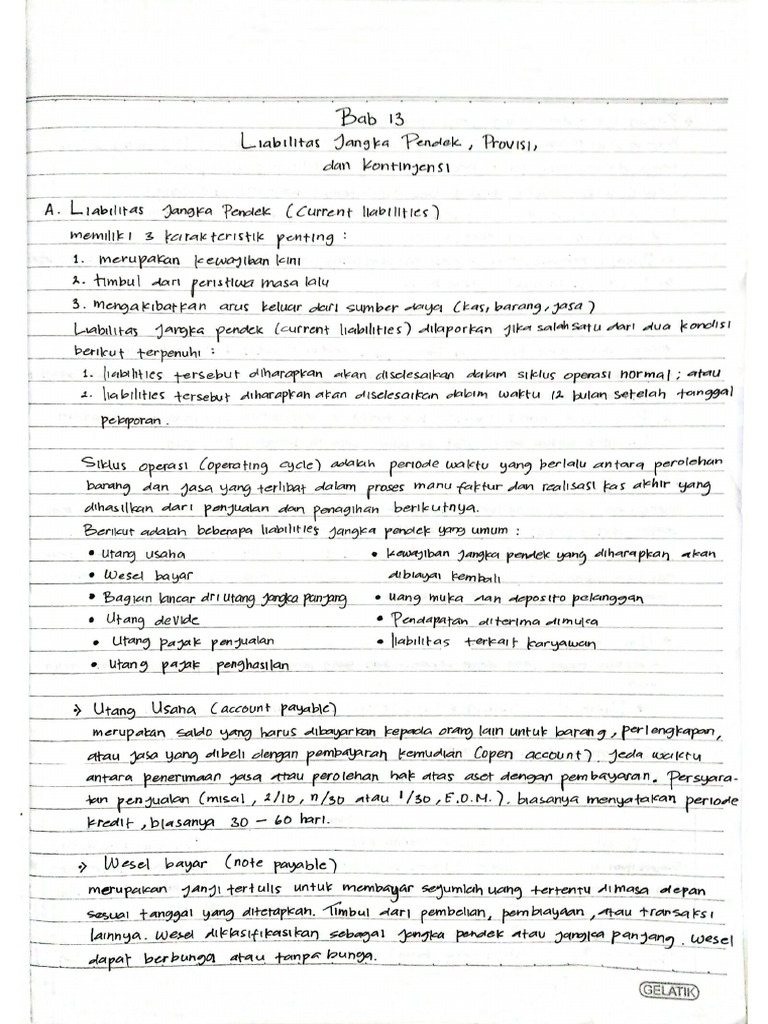 Bab 13
Liabilitas Jangka Pendek, Provisi,
dan Kontinjensi
A. Liabilitas Jangka Pendek (Current liabilities)
memiliki 3 karakteristik penting :
1. merupakan kewajiban kini
2. timbul dari peristiwa masa lalu
3. mengakibatkan arus keluar dari sumber daya (kas, barang, jasa)
Liabilitas Jangka pendek (current liabilities) dilaporkan jika salah satu dari dua kondisi
berikut terpenuhi :
1. liabilities tersebut diharapkan akan diselesaikan dalam siklus operasi normal ; atau
2. liabilities tersebut diharapkan akan diselesaikan dalam waktu 12 bulan setelah tanggal
pelaporan.
Siklus operasi (operating cycle) adalah periode waktu yang berlalu antara perolehan
barang dan jasa yang terlibat dalam proses manufaktur dan realisasi kas akhir yang
dihasilkan dari penjualan dan penagihan berikutnya.
Berikut adalah beberapa liabilities jangka pendek yang umum :
• Utang usaha
• Wesel bayar
• Bagian lancar dri utang jangka panjang
• Utang devide
• Utang pajak penjualan
• Utang pajak penghasilan
• kewajiban jangka pendek yang diharapkan akan
dibiayai kembali
• uang muka dan deposito pelanggan
• Pendapatan diterima dimuka
• liabilitas terkait karyawan
⇒ Utang Usaha (account payable)
merupakan saldo yang harus dibayarkan kepada orang lain untuk barang, perlengkapan,
atau jasa yang dibeli dengan pembayaran kemudian (open account). Jeda waktu
antara penerimaan jasa atau perolehan hak atas aset dengan pembayaran. Persyara-
tan penjualan (misal, 2/10, n/30 atau 1/30, E.O.M.). biasanya menyatakan periode
kredit, biasanya 30 – 60 hari.
⇒ Wesel bayar (note payable)
merupakan janji tertulis untuk membayar sejumlah uang tertentu dimasa depan
sesuai tanggal yang ditetapkan. Timbul dari pembelian, pembiayaan, atau transaksi
lainnya. Wesel diklasifikasikan sebagai jangka pendek atau jangka panjang. Wesel
dapat berbunga atau tanpa bunga.
GELATIK